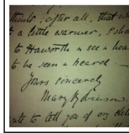 think, after all, that
to a little warmer, I sha
to Haworth & see & hea
to be seen & heard —
Yours sincerely
Mary Robinson
to tell you of my